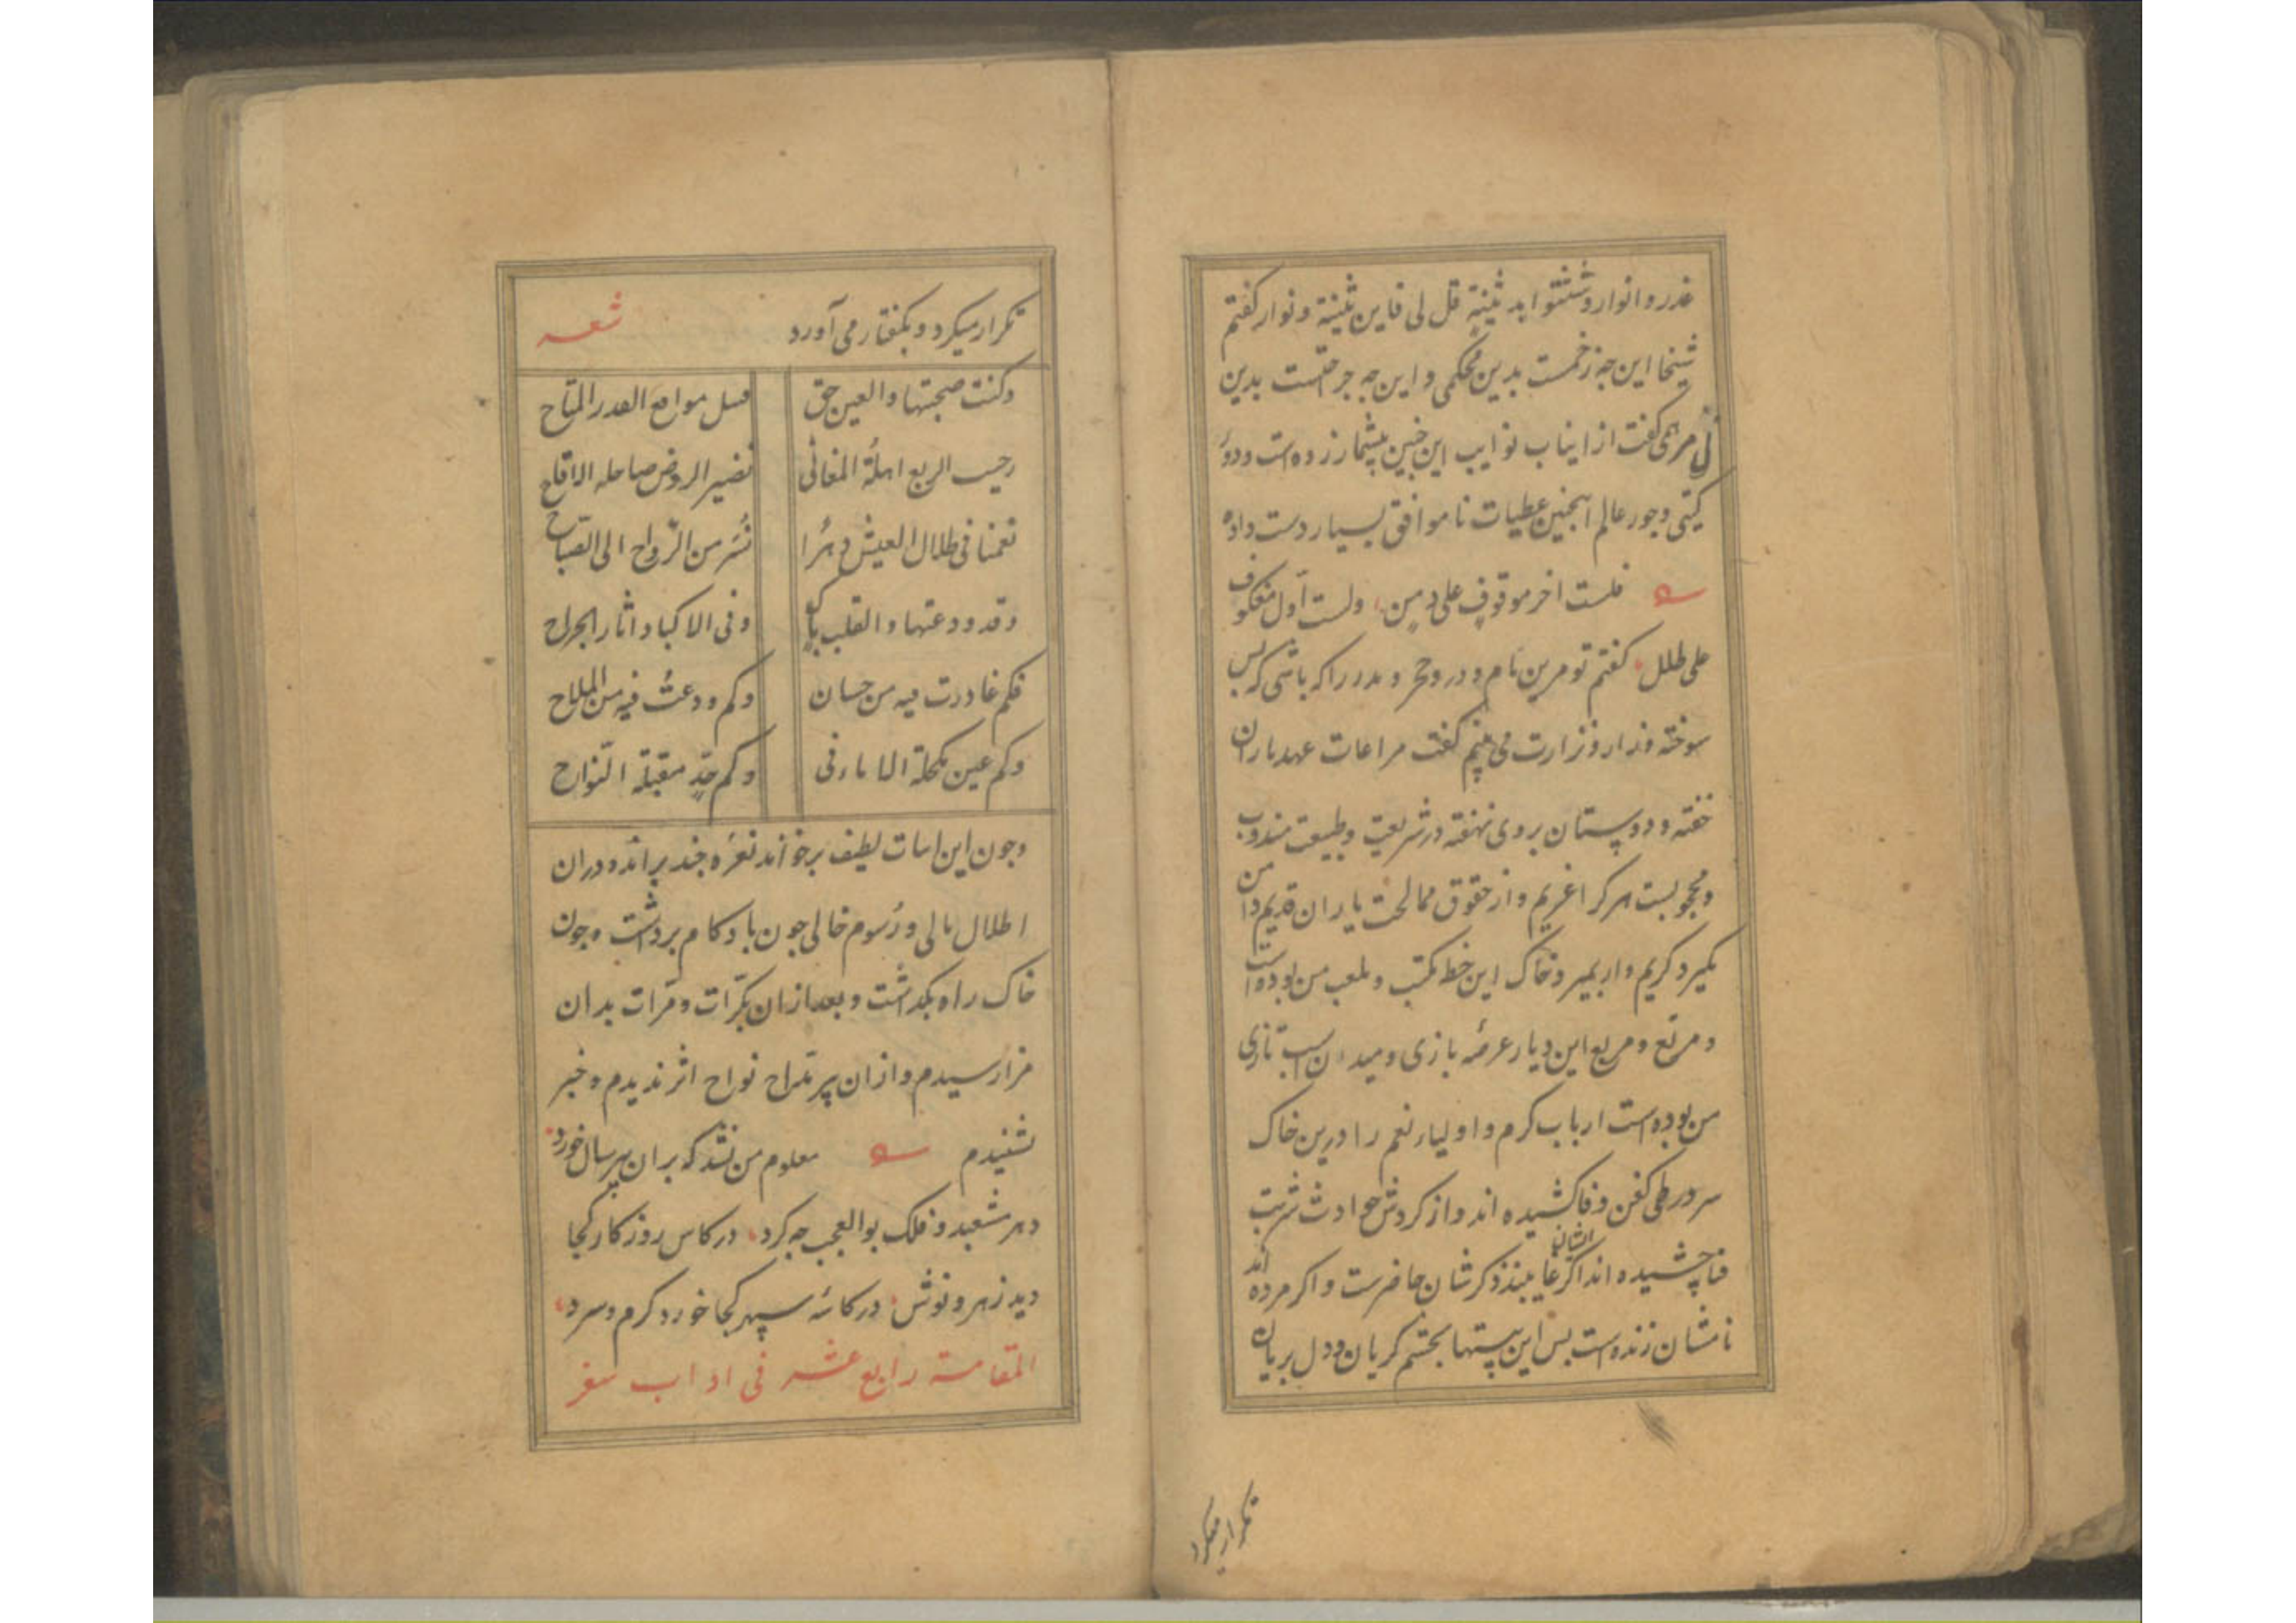 غدر و انوار و شتتوا بد ثینة قل لی فاین ثینة و نوار کفتم
شیخا این چه زخمست بدین محکمی و این چه جرحتست بدین
مرهمی کفت از انیاب نوایب این چنین بیشمار زده است و دور
کیتی و جور عالم اینچنین عطیات ناموافق بسیار دست داده
فلست اخر موقوف علی دمن ولست اول معکوف
علی طلل کفتم تو مرین نام و در و حجر و مدر را که باشی که بس
سوخته و زار و نزارت می بینم کفت مراعات عهد یاران
خفته و دوستان بروی نهفته در شریعت و طبیعت مندوب
و محجوبست هر کرا غریم و از حقوق ممالحت یاران قدیم دامن
بکیرد کریم وار بمیرد و خاک این خط مکتب و ملعب من بوده است
و مرتع و مربع این دیار عرصه بازی و میدان اسب تازی
من بوده است ارباب کرم و اولیاء نعم را درین خاک
سر در طی کفن و فا کشیده اند و از کردش حوادث شربت
فنا چشیده اند اکر ایشان غایبند ذکرشان حاضرست و اکر مرده اند
نامشان زنده است بس این بیتها بچشم کریان و دل بریان
تکرار میکرد
تکرار میکرد و بکفتار می آورد شعر
وکنت صحبتها والعین حق قبل مواقع القدر المتاح
رحیب الربع اهلة المغانی نضیر الروض ضاحکه الاقاح
نعمنا فی ظلال العیش دهرا نسر من الرواح الی الصباح
وقد ودعتها والقلب باک وفی الاکباد اثار الجراح
فکم غادرت فیه من حسان وکم ودعت فیه من الملاح
وکم عین مکحلة فی وکم خد مقبلة النواح
وچون این ابیات لطیف برخواند نعره چند براند و دران
اطلال بالی و رسوم خالی چون باد کام برداشت و چون
خاک راه بکذاشت و بعد ازان بکرات و مرات بدان
مزار رسیدم و ازان پیر نواح اثر ندیدم و خبر
نشنیدم معلوم من نشد که بران پیر سال خورد
دهر مشعبد و فلک بوالعجب چه کرد در کاس روزکار کجا
دید زهر و نوش در کاسه سپهر کجا خورد کرم و سرد
المقامة رابع عشر فی اداب سفر